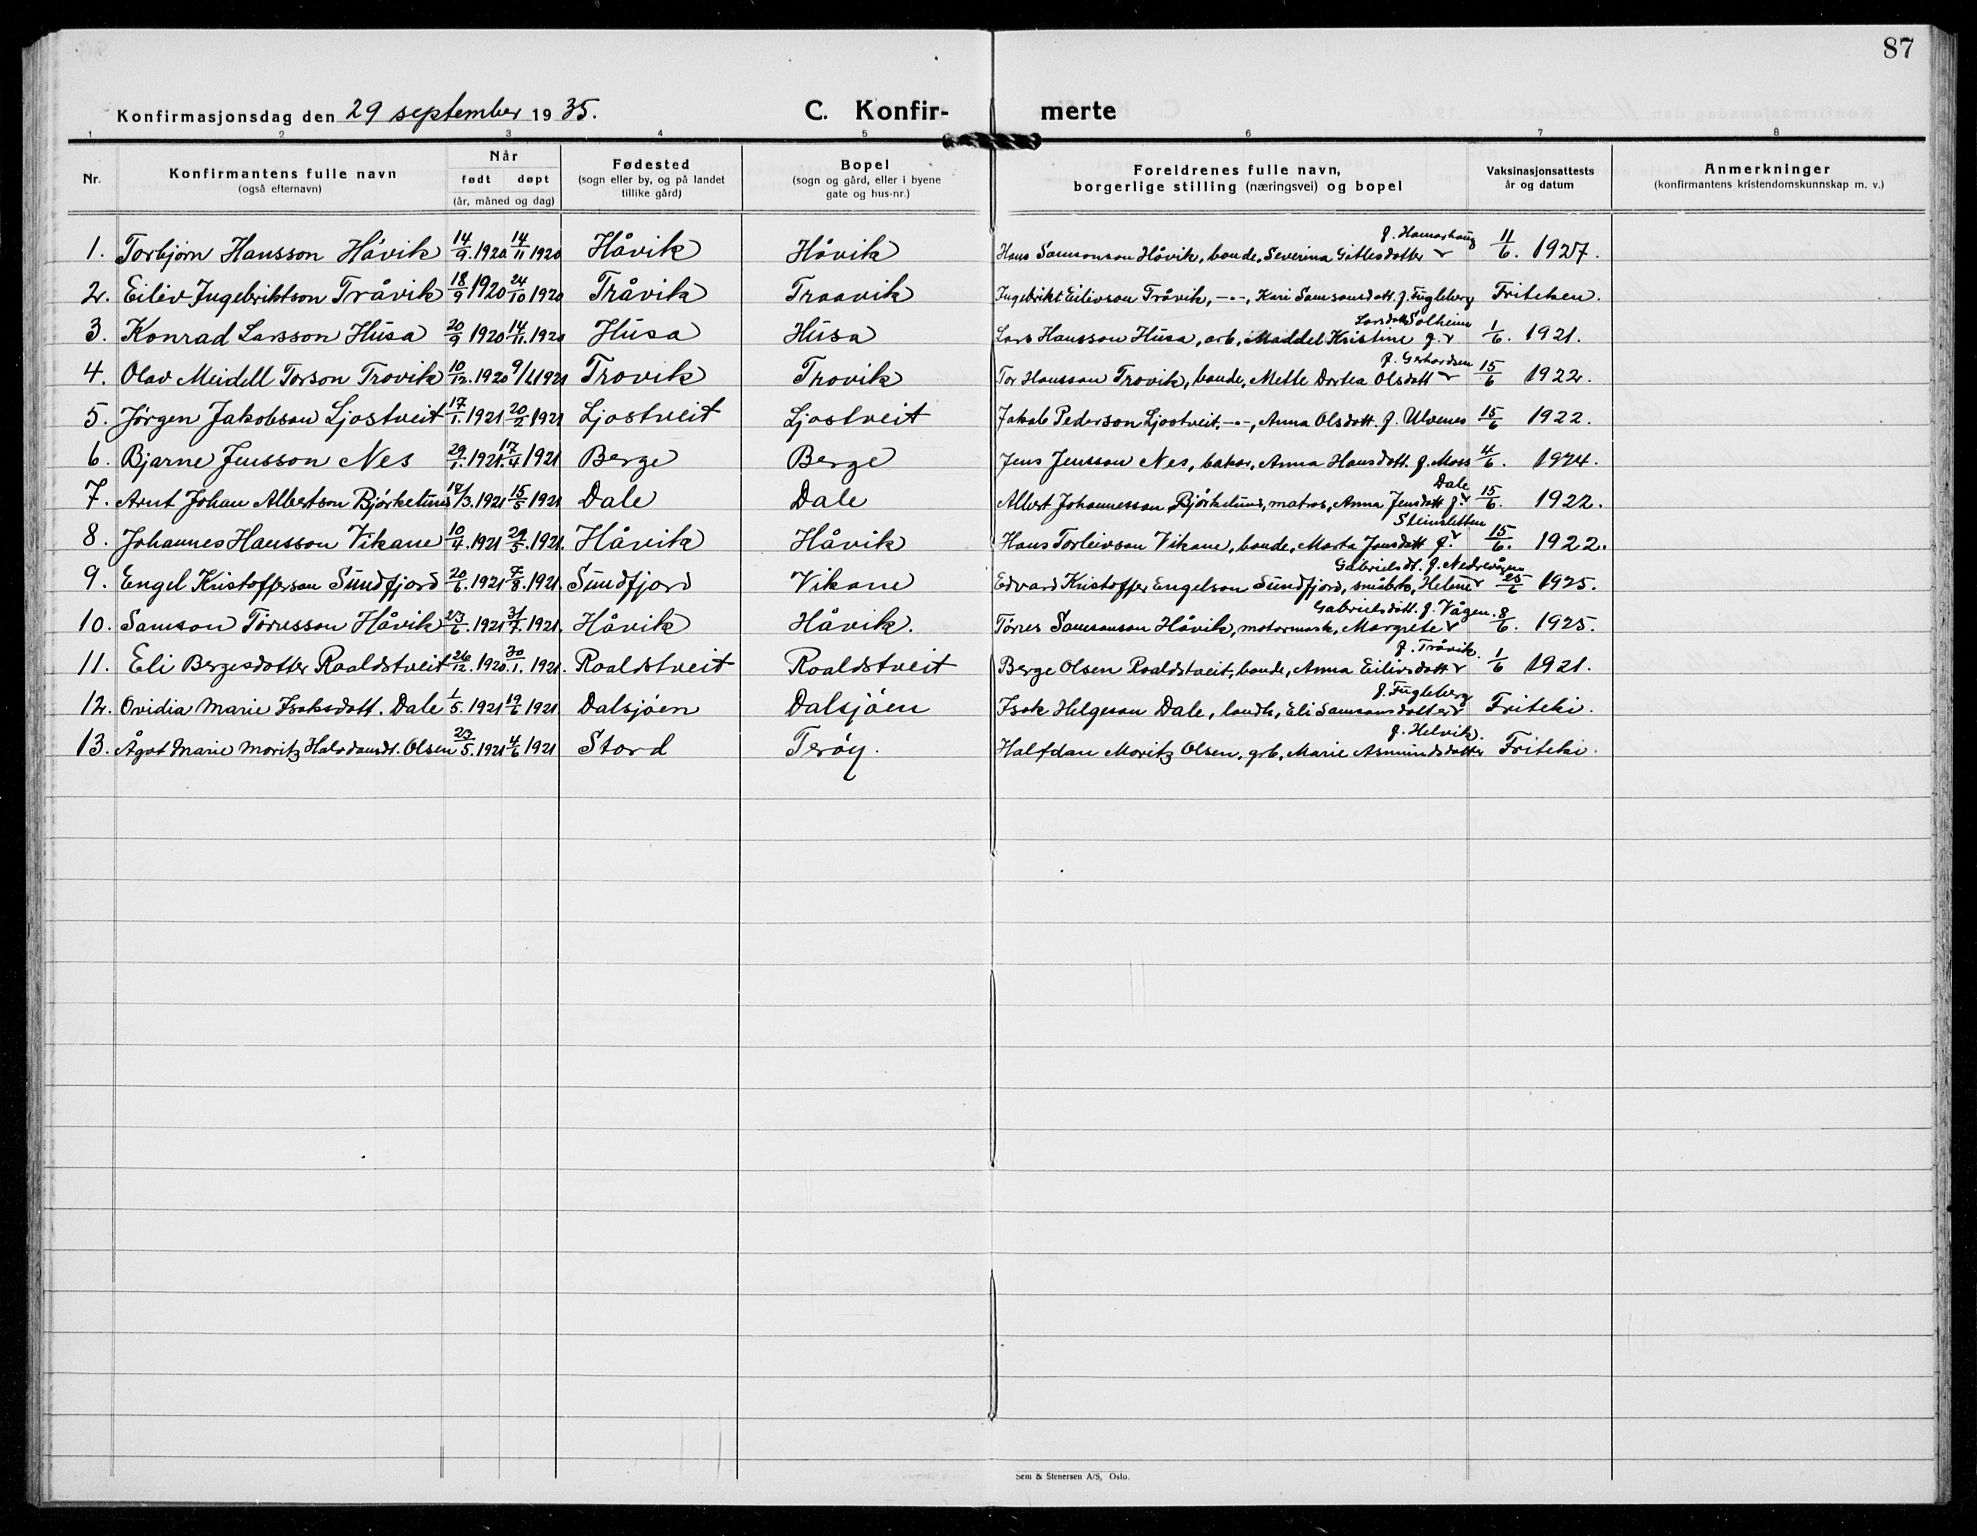 87
Konfirmasjonsdag den 29 september 1935. C. Konfir- merte
1 2 3 4 5 6 7 8
Nr. Konfirmantens fulle navn (også efternavn) Når født døpt (år, måned og dag) Fødested (sogn eller by, og på landet tillike gård) Bopel (sogn og gård, eller i byene gate og hus-nr.) Foreldrenes fulle navn, borgerlige stilling (næringsvei) og bopel Vaksinasjonsattests år og datum Anmerkninger (konfirmantens kristendomskunnskap m. v.)
1. Torbjørn Hansson Håvik 14/9. 1920 14/11 1920 Håvik Håvik Hans Samsonson Håvik, bonde, Severina Gittlesdotter f. Hamarhaug 11/6. 1927.
2. Eiliv Ingebriktson Tråvik 18/9 1920 24/10 1920 Tråvik Traavik Ingebrikt Eilivson Tråvik, -"-, Kari Samsonsdott. f. Fugleberg Friteken.
3. Konrad Larsson Húsa 20/9 1920 14/11. 1920 Húsa Húsa Lars Hansson Húsa, arb, Maddel Kristine Larsdott f. Solheim 1/6. 1921.
4. Olav Meidell Torson Trovik 10/12. 1920 9/1 1921 Trovik Trovik Tor Hansson Trovik, bonde, Mette Dortea Olsdott f. Gerhardsen 15/6 1922.
5. Jørgen Jakobson Ljostveit 17/1. 1921 20/2 1921 Ljostveit Ljostveit Jakob Pederson Ljostveit, -"-, Anna Olsdott. f. Ulvenes 15/6 1922.
6. Bjarne Jensson Nes 29/1. 1921. 17/4 1921 Berge Berge Jens Jensson Nes, baker, Anna Hansdott. f. Moss 4/6. 1924.
7. Arnt Johan Albertson Bjørkelund 17/3. 1921 15/5 1921 Dale Dale Albert Johannesson Bjørkelund, matros, Anna Jensdott f. Dale 15/6. 1922.
8. Johannes Hansson Vikane 10/4. 1921 29/5. 1921. Håvik Håvik Hans Torleivson Vikane, bonde, Marta Jonsdott f. Steinsletten 15/6. 1922.
9. Engel Kristofferson Sundfjord 20/6. 1921 7/8. 1921. Sundfjord Vikane Edvard Kristoffer Engelson Sundfjord, småbr., Helene Gabrielsdt. f. Nedrevågen 25/6 1925.
10. Samson Tørresson Håvik 23/6. 1921 31/7. 1921. Håvik Håvik. Tørres Samsonson Håvik, motormask, Margrete Gabrielsdott. f. Vågen. 8/6. 1925.
11. Eli Bergesdotter Roaldstveit 26/12. 1920. 30/1. 1921. Roaldstveit Roaldstveit Berge Olsen Roaldstveit, bonde, Anna Eilivsdott f. Tråvik. 1/6 1921.
12. Ovidia Marie Isaksdott. Dale 1/5. 1921 19/6 1921 Dalsjøen Dalsjøen Isak Helgeson Dale, landh, Eli Samsonsdotter f. Fugleberg Friteki.
13. Ågot Marie Moritz Halvdansdt. Olsen 23/5. 1921 4/6 1921 Stord Terøy. Halfdan Moritz Olsen, grb, Marie Asmundsdotter f. Helvik. Friteki.
Sem & Stenersen A/S, Oslo.